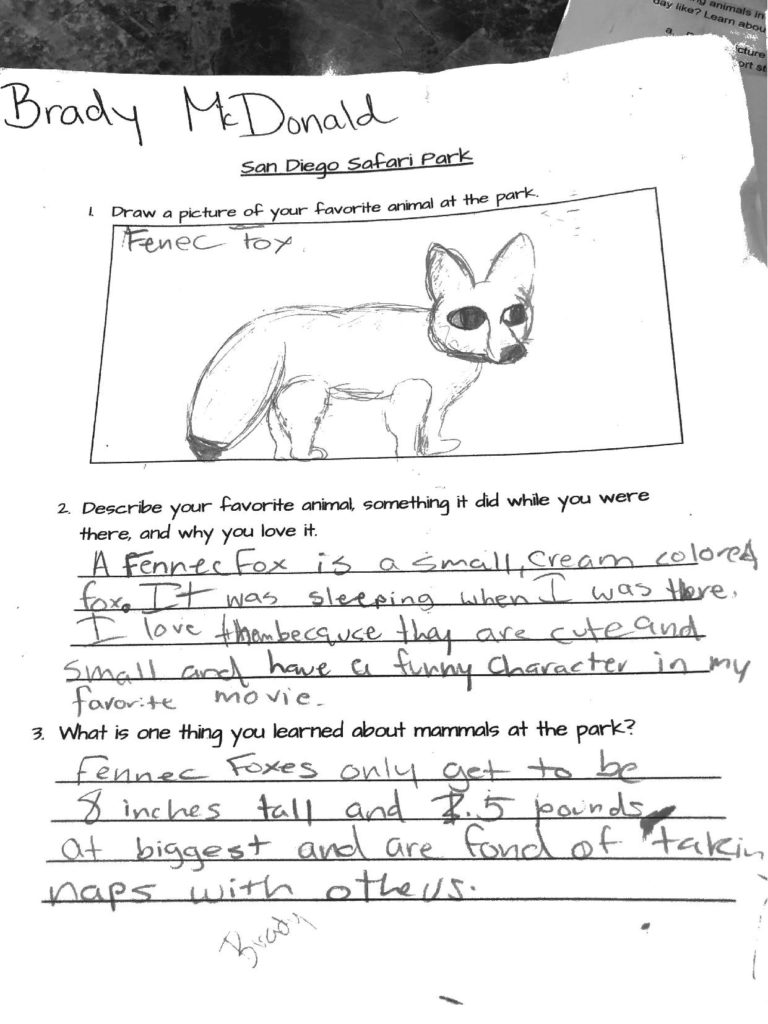 ng animals in
day like? Learn abou
a.
cture
ort st
Brady McDonald
San Diego Safari Park
1. Draw a picture of your favorite animal at the park.
Fenec fox.
2. Describe your favorite animal, something it did while you were
there, and why you love it.
A Fennec Fox is a small, cream colored
fox. It was sleeping when I was there.
I love them because they are cute and
small and have a funny character in my
favorite movie.
3. What is one thing you learned about mammals at the park?
Fennec Foxes only get to be
8 inches tall and .5 pounds
at biggest and are fond of takin
naps with others.
Brady